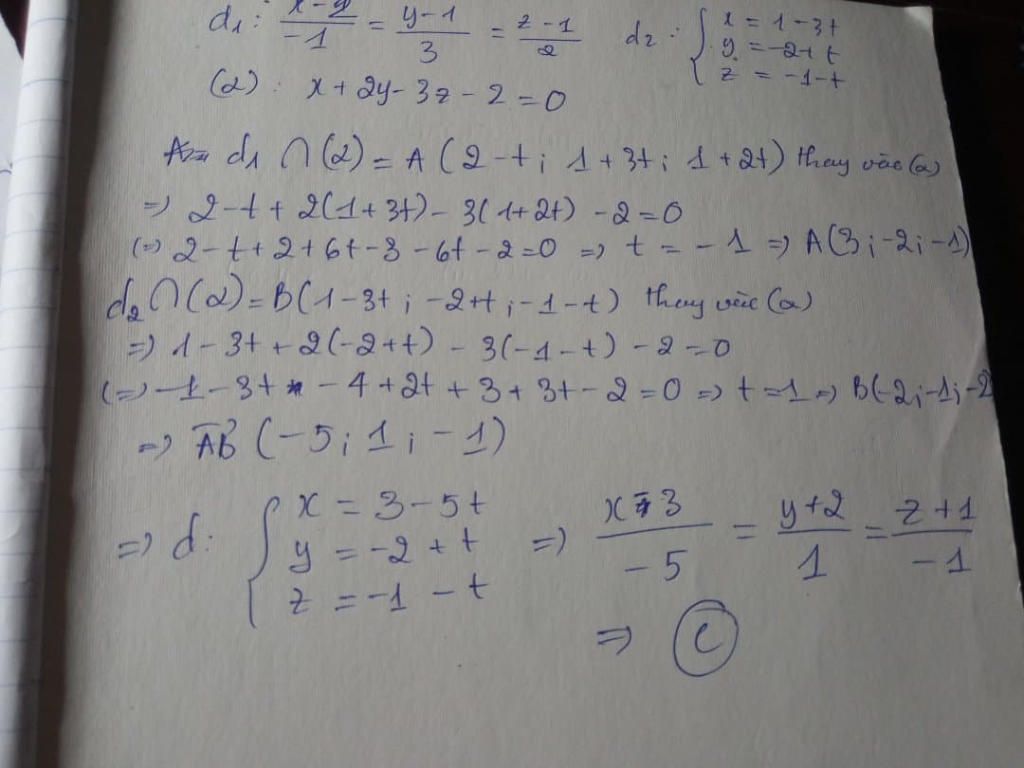 d₁: (x-2)/-1 = (y-1)/3 = (z-1)/2 d₂: { x = 1-3t
y = -2+t
z = -1-t
(α): x+2y-3z-2=0
d₁ ∩ (α) = A (2-t; 1+3t; 1+2t) thay vào (α)
=> 2-t+2(1+3t)-3(1+2t)-2=0
(=> 2-t+2+6t-3-6t-2=0 => t = -1 => A(3;-2;-1)
d₂ ∩ (α) = B(1-3t; -2+t; -1-t) thay vào (α)
=> 1-3t+2(-2+t)-3(-1-t)-2=0
(=> -1-3t-4+2t+3+3t-2=0 => t=1 => B(-2;-1;-2)
=> AB⃗ (-5; 1; -1)
=> d: { x = 3-5t
y = -2+t
z = -1-t
=> (x-3)/-5 = (y+2)/1 = (z+1)/-1
=> C